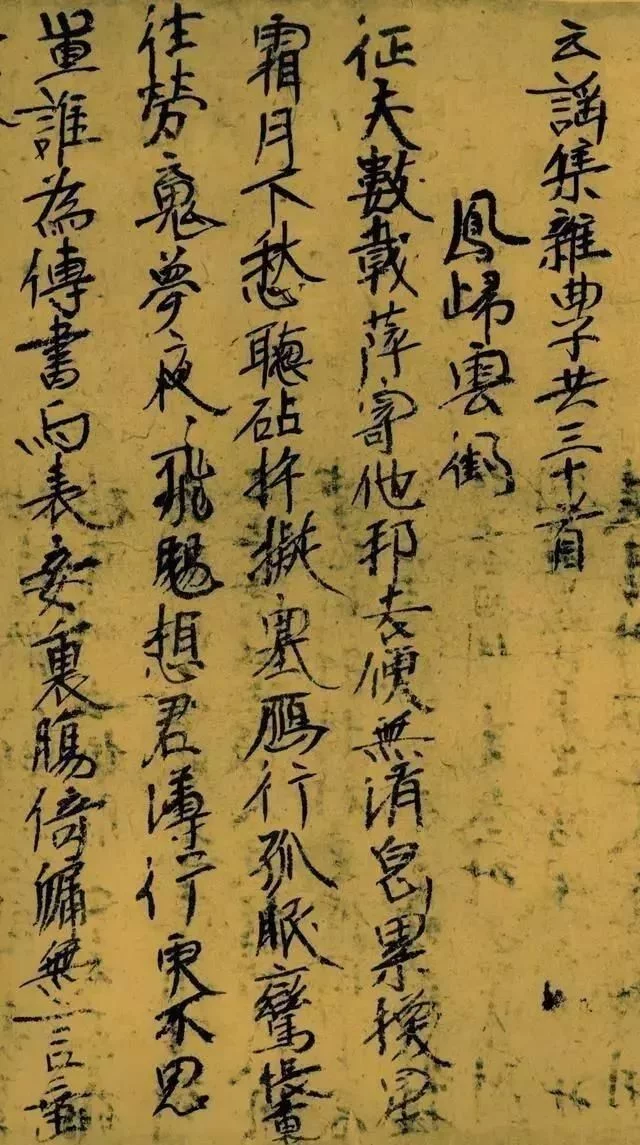 云謡集雜曲子共三十首
鳳歸雲
征夫數載萍寄他邦去便無消息累換星
霜月下愁聽砧杵擬塞鴈行孤眠鸞帳裏
往勞魂夢夜〻飛颺想君薄行更不思
量誰為傳書与表妾腸倚牖無言垂